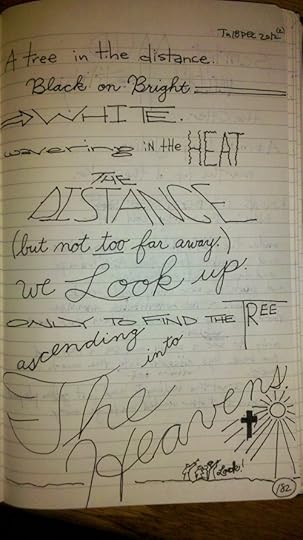 Tu18DEC2012
A tree in the distance.
Black on Bright
WHITE.
wavering IN the HEAT
THE
DISTANCE
(but not too far away.)
We Look up.
ONLY TO FIND THE TREE
ascending into
The
Heavens.
Look!
182